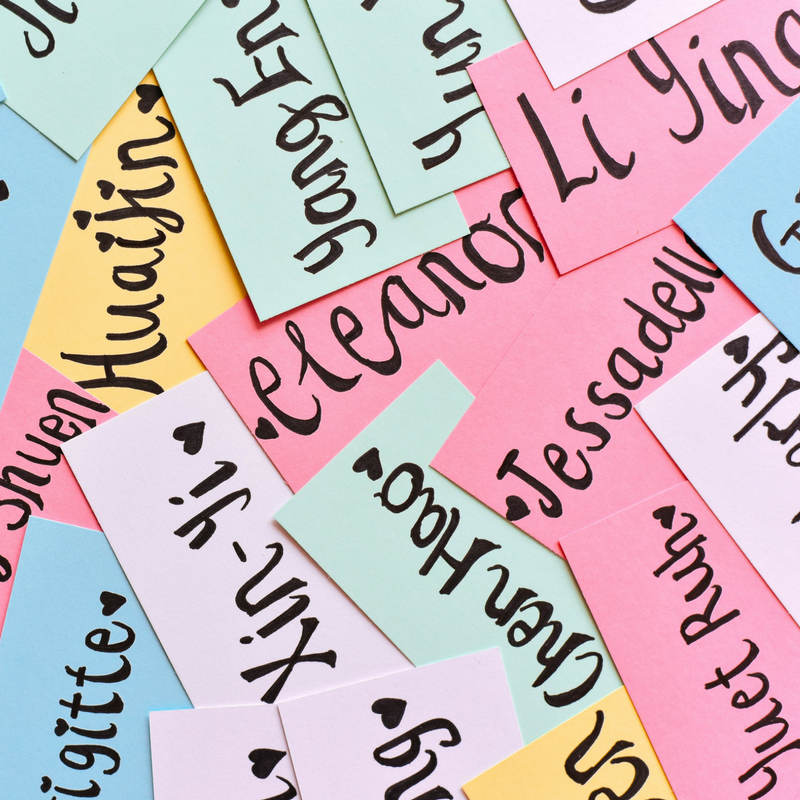 Yang En
Li Ying
Huaijin
eleanor
Jessadell
Shuen
Xin-yi
Chen Hao
Juet Ruh
igitte